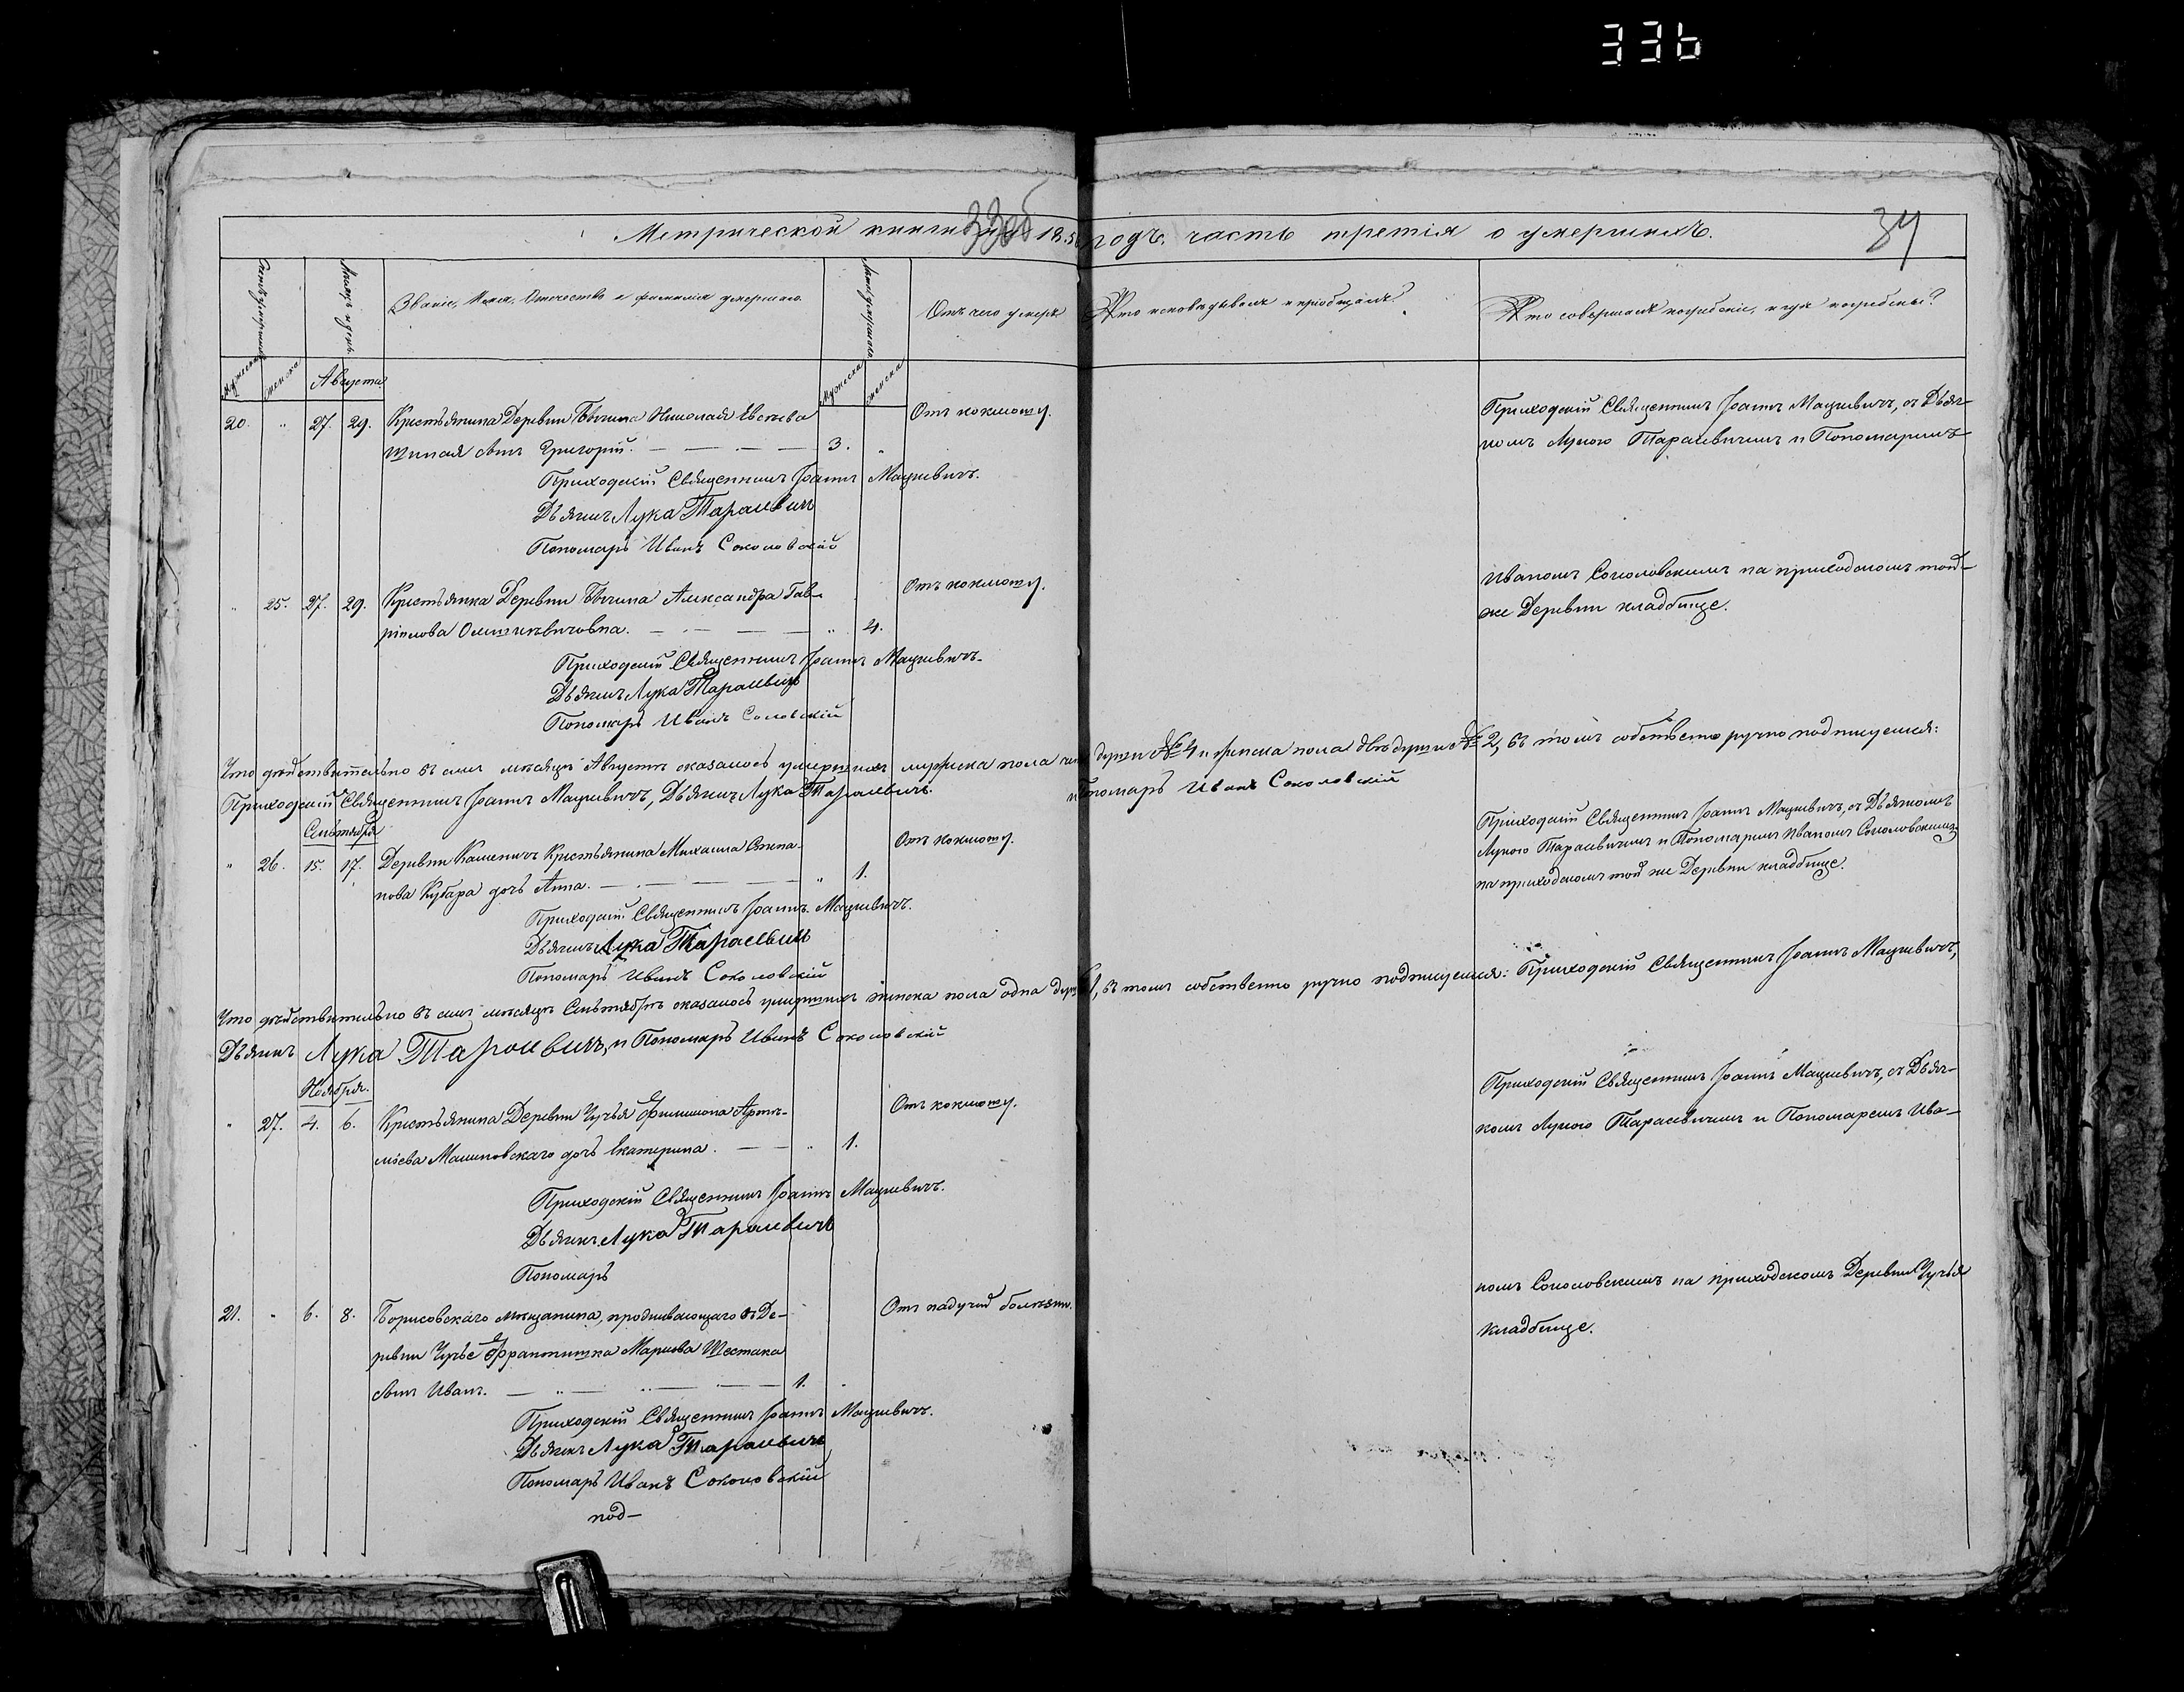 336
33об
34
Метрической книги на 185 годъ, часть третія о умершихъ.
Счетъ умершихъ
Мѣсяцъ и день
Званіе, Имя, Отчество и фамилія умершаго.
Лѣта умершаго
Отъ чего умеръ
Кто исповѣдывалъ и пріобщалъ?
Кто совершалъ погребеніе, и гдѣ погребены?
Мужеска
женска
Августа
Мужеска
женска
20. " 27. 29. Крестьянина Деревни Бѣгчина Николая Евсѣева
сынъ Григорій. 3. "
Отъ коклюшу.
Приходскій Священникъ Іоаннъ Мацкевичъ.
Дьячекъ Лука Тарасевичъ
Пономарь Иванъ Соколовскій
Приходскій Священникъ Іоаннъ Мацкевичъ, съ Дьяч-
комъ Лукою Тарасевичемъ и Пономаремъ
" 25. 27. 29. Крестьянка Деревни Бѣгчина Александра Гав-
рилова Олешкевичовна. " 4.
Отъ коклюшу.
Приходскій Священникъ Іоаннъ Мацкевичъ.
Дьячекъ Лука Тарасевичъ
Пономарь Иванъ Соловскій
Иваномъ Соколовскимъ на приходскомъ той-
же Деревни кладбище.
Что дѣйствительно въ семъ мѣсяцѣ Августѣ оказалось умершихъ мужеска пола душъ № 4 и женска пола двѣ души № 2, въ томъ собственно ручно подпишемся:
Приходскій Священникъ Іоаннъ Мацкевичъ, Дьячекъ Лука Тарасевичъ. и Пономарь Иванъ Соколовскій
Сентября
" 26. 15. 17. Деревни Каменичъ Крестьянина Михаила Степа-
нова Кубара дочь Анна. " 1.
Отъ коклюшу.
Приходскій Священникъ Іоаннъ Мацкевичъ.
Дьячекъ Лука Тарасевичъ
Пономарь Иванъ Соколовскій
Приходскій Священникъ Іоаннъ Мацкевичъ, съ Дьячкомъ
Лукою Тарасевичемъ и Пономаремъ Иваномъ Соколовскимъ
на приходскомъ той же Деревни кладбище.
Что дѣйствительно въ семъ мѣсяцѣ Сентябрѣ оказалось умершихъ женска пола одна душа 1, въ томъ собственно ручно подпишемся: Приходскій Священникъ Іоаннъ Мацкевичъ,
Дьячекъ Лука Тарасевичъ, и Пономарь Иванъ Соколовскій
Ноября.
" 27. 4. 6. Крестьянина Деревни Чучья Филимона Артѣ-
міева Малиновскаго дочь Екатерина. " 1.
Отъ коклюшу.
Приходскій Священникъ Іоаннъ Мацкевичъ.
Дьячекъ Лука Тарасевичъ
Пономарь
Приходскій Священникъ Іоаннъ Мацкевичъ, съ Дьяч-
комъ Лукою Тарасевичемъ и Пономаремъ Ива-
21. " 6. 8. Борисовскаго мѣщанина, проживающаго въ Де-
ревни Чучье Франтишка Маркова Шестака
сынъ Иванъ. 1. "
Отъ падучей болѣзни.
Приходскій Священникъ Іоаннъ Мацкевичъ.
Дьячекъ Лука Тарасевичъ
Пономарь Иванъ Соколовскій
номъ Соколовскимъ на приходскомъ Деревни Чучья
кладбище.
под-